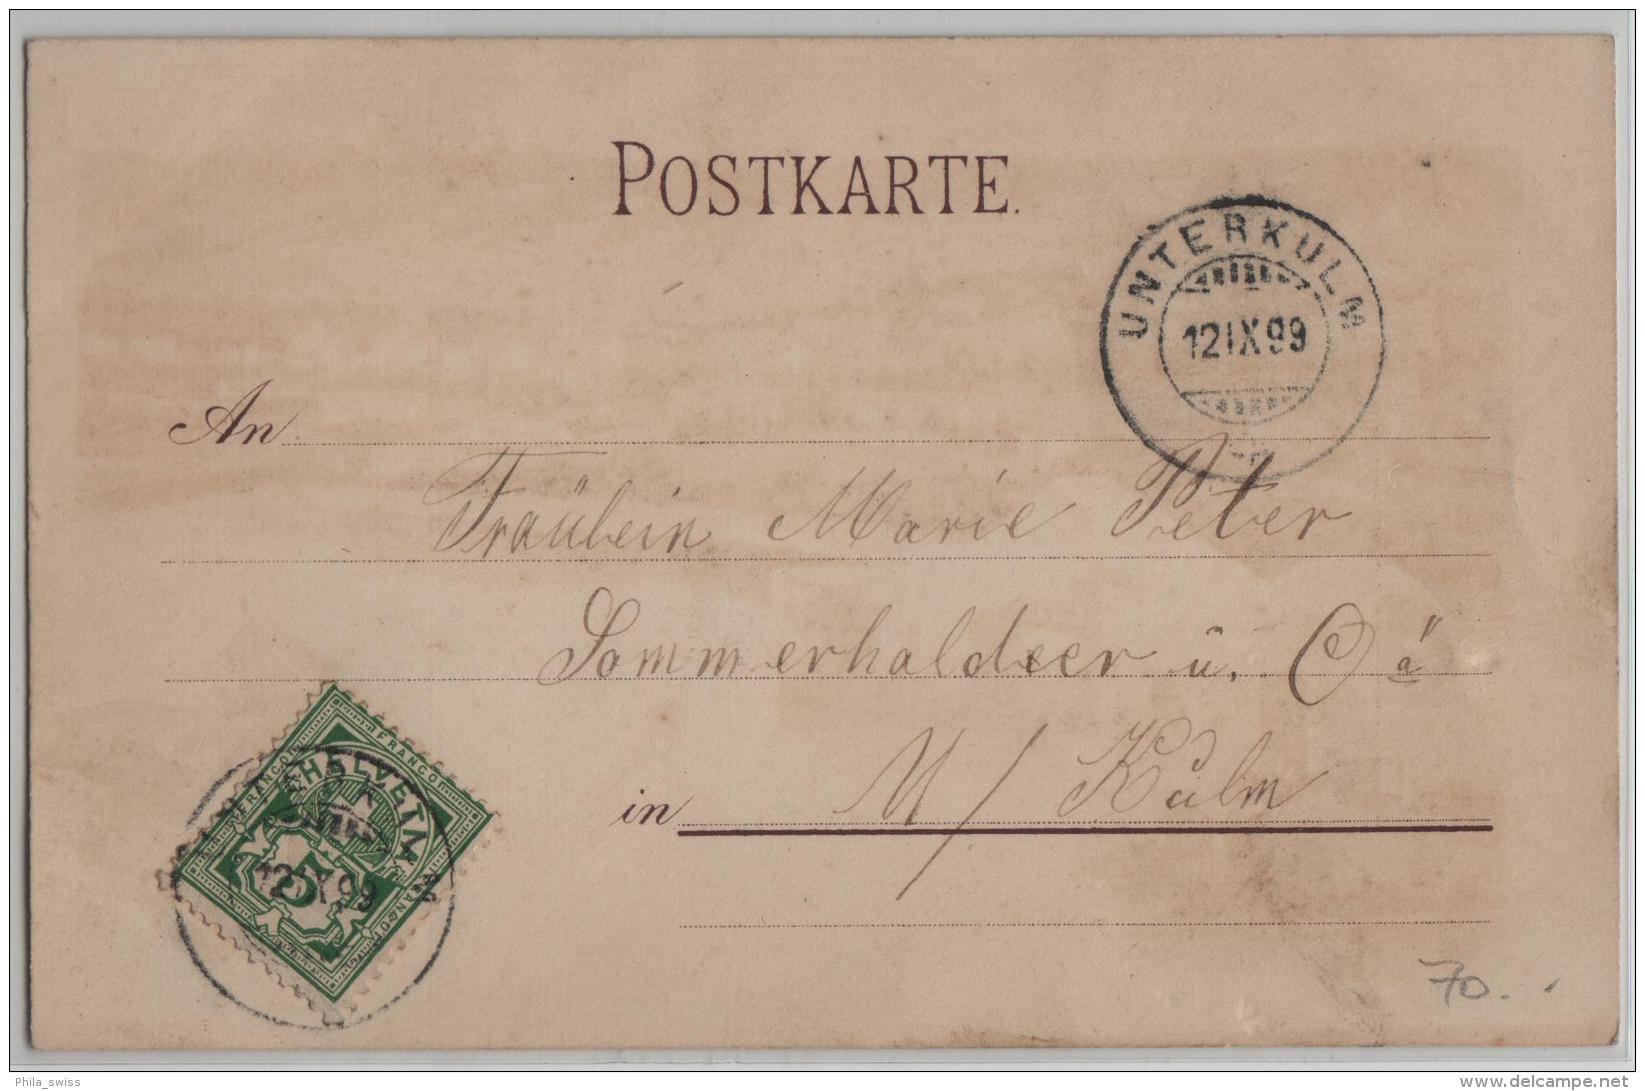 POSTKARTE.
UNTERKULM
12 IX 99
An
Fräulein Marie Peter
Sommerhalder u. Cⁱᵃ
in U/Kulm
FRANCO FRANCO
HELVETIA
5
FRANCO
12 IX 99
70.
Phila_swiss
www.delcampe.net